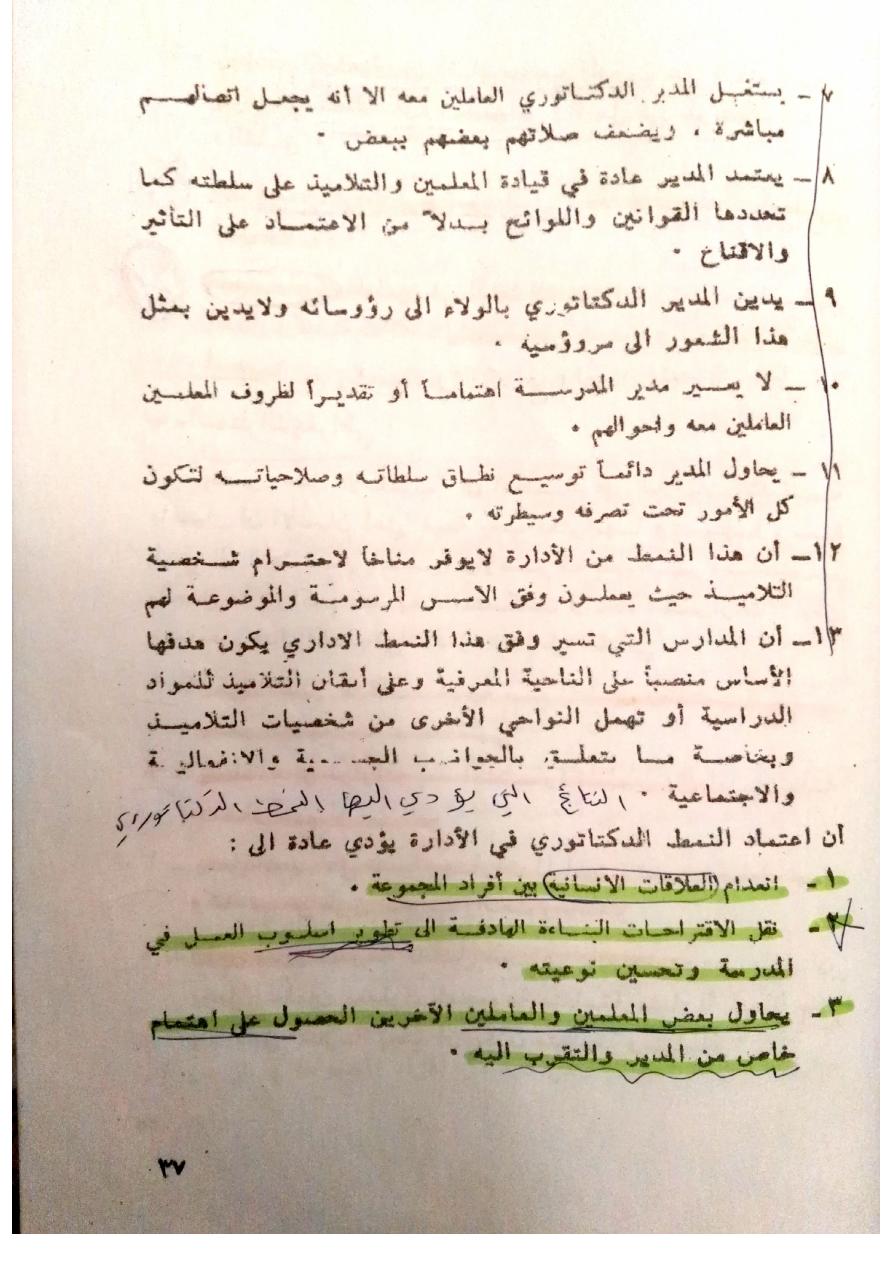 ٧ ـ يستغـل المدير الدكتـاتوري العاملين معه الا أنه يجعـل اتصالهـم
مباشرة ، ويضعف صلاتهم بعضهم ببعض ٠
٨ ـ يعتمد المدير عادة في قيادة المعلمين والتلاميذ على سلطته كما
تحددها القوانين واللوائح بـدلاً من الاعتمـاد على التأثير
والاقناع ٠
٩ ـ يدين المدير الدكتاتوري بالولاء الى رؤوسائه ولايدين بمثل
هذا الشعور الى مرؤسيه ٠
١٠ ـ لا يعـير مدير المدرسـة اهتمامـاً أو تقديـراً لظروف المعلمـين
العاملين معه واحوالهم ٠
١١ ـ يحاول المدير دائمـاً توسيـع نطـاق سلطاتـه وصلاحياتـه لتكون
كل الأمور تحت تصرفه وسيطرته ٠
١٢ـ أن هذا النمـط من الأدارة لايوفر مناخاً لاحتـرام شـخصية
التلاميـذ حيث يعملـون وفق الاسس المرسومـة والموضوعـة لهم
١٣ـ أن المدارس التي تسير وفق هذا النمط الاداري يكون هدفها
الأساس منصباً على الناحية المعرفية وعلى أتقان التلاميذ للمواد
الدراسية أو تهمل النواحي الأخرى من شخصيات التلاميـذ
وبخاصـة مـا يتعلـق بالجوانـب الجسـمية والانفعاليـة
والاجتماعية ٠ النتائج التي يؤدي اليها النمط الدكتاتوري
أن اعتماد النمط الدكتاتوري في الأدارة يؤدي عادة الى :
١ـ انعدام العلاقات الانسانية بين أفراد المجموعة ٠
٢ـ نقل الاقتراحـات البنـاءة الهادفـة الى تطوير اسلـوب العمـل في
المدرسة وتحسين نوعيته ٠
٣ـ يحاول بعض المعلمين والعاملين الآخرين الحصول على اهتمام
خاص من المدير والتقرب اليه ٠
٣٧